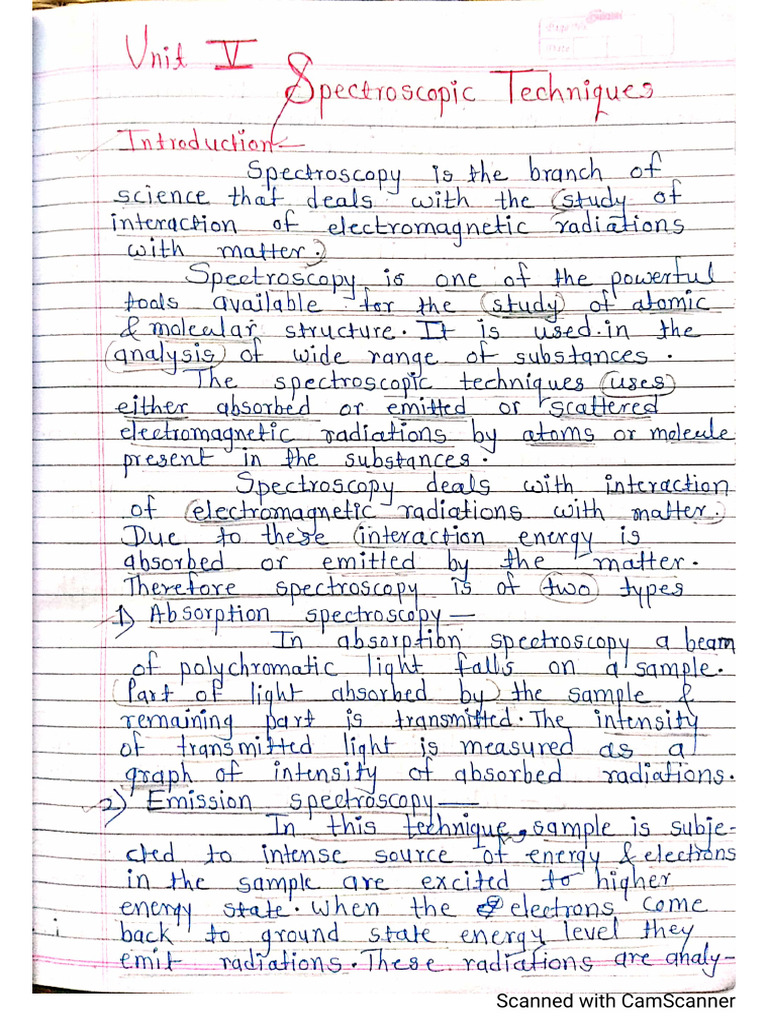 Unit V
Spectroscopic Techniques
Introduction—
Spectroscopy is the branch of
science that deals with the (study of
interaction of electromagnetic radiations
with matter.)
Spectroscopy is one of the powerful
tools available for the (study) of atomic
& molecular structure. It is used in the
(analysis) of wide range of substances.
The spectroscopic techniques (uses)
either absorbed or emitted or scattered
electromagnetic radiations by atoms or molecule
present in the substances.
Spectroscopy deals with interaction
of (electromagnetic radiations with matter.)
Due to these (interaction energy is
absorbed or emitted by the matter.
Therefore spectroscopy is of (two) types
1) Absorption spectroscopy—
In absorption spectroscopy a beam
of polychromatic light falls on a sample.
(Part of light absorbed by) the sample &
remaining part is transmitted. The intensity
of transmitted light is measured as a
graph of intensity of absorbed radiations.
2) Emission spectroscopy—
In this technique, sample is subje-
cted to intense source of energy & electrons
in the sample are excited to higher
energy state. When the electrons come
back to ground state energy level they
emit radiations. These radiations are analy-
Scanned with CamScanner